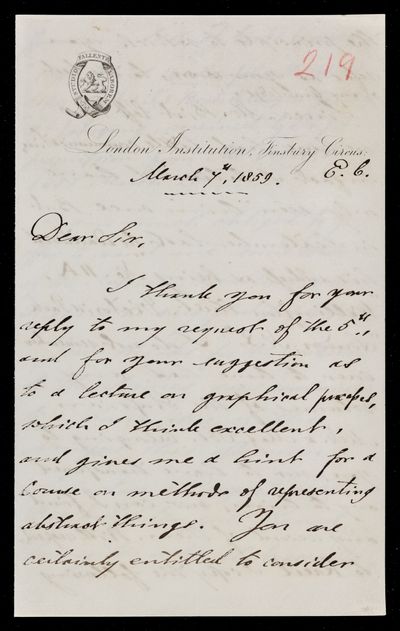 STUDIO FALLENTE LABOREM
219
London Institution, Finsbury Circus,
March 7th, 1859. E. C.
Dear Sir,
I thank you for your
reply to my request of the 5th,
and for your suggestion as
to a lecture on graphical processes,
which I think excellent,
and gives me a hint for a
Course on methods of representing
abstract things. You are
certainly entitled to consider